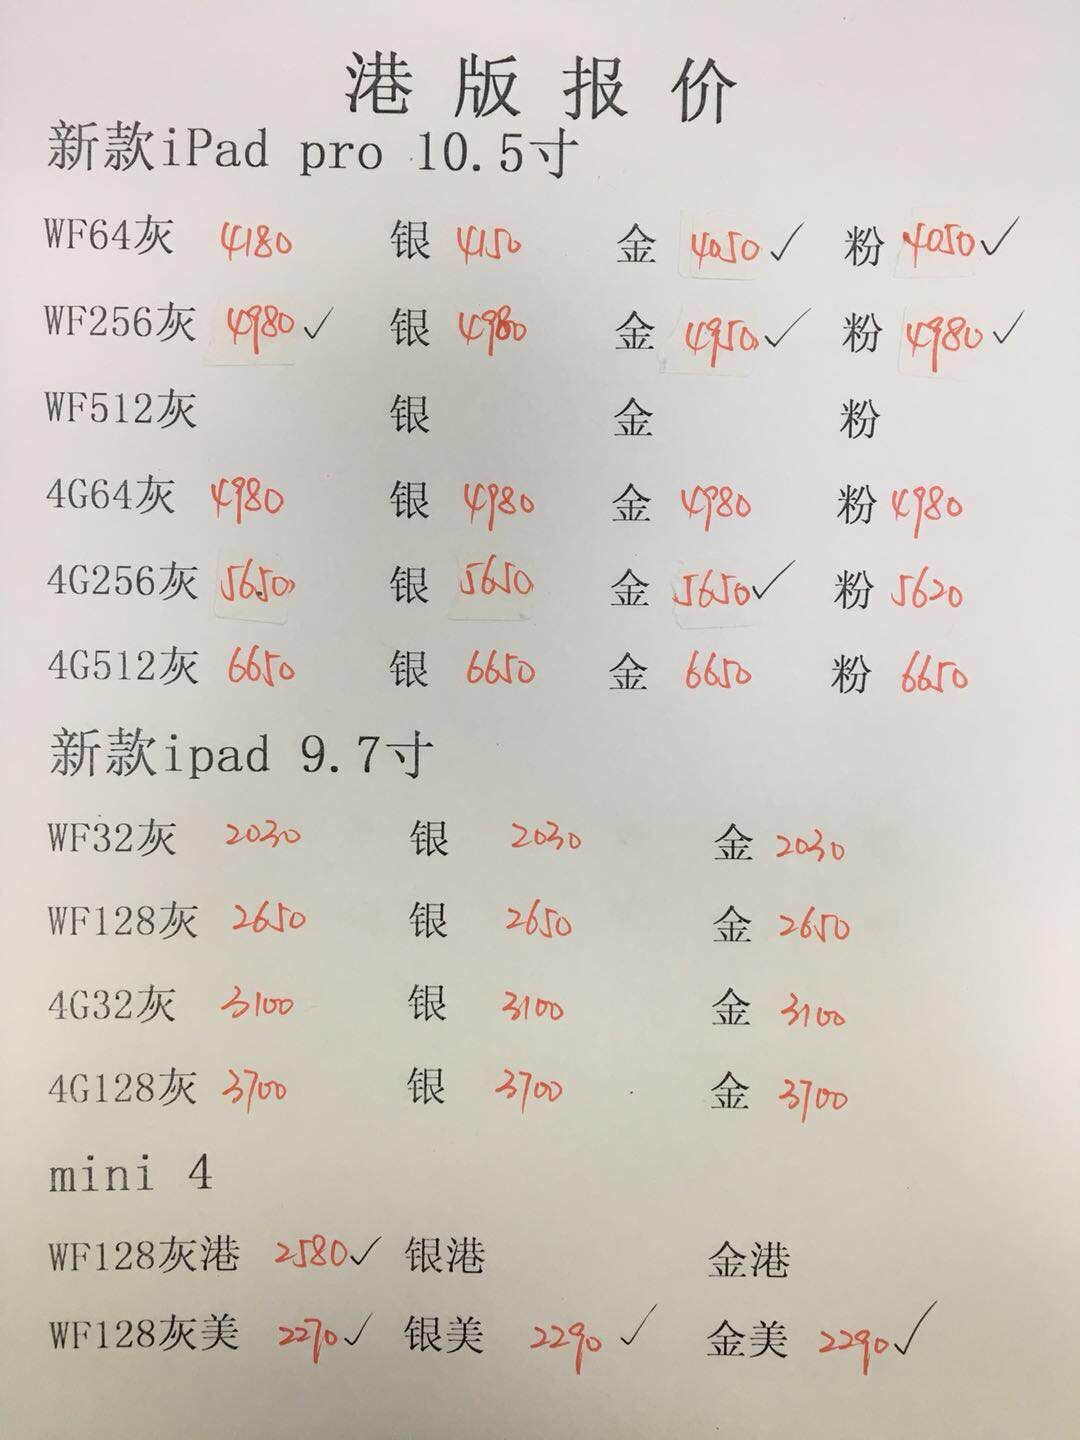 港版报价
新款iPad pro 10.5寸
WF64灰 4180 银 4150 金 4050 ✓ 粉 4050 ✓
WF256灰 4980 ✓ 银 4980 金 4950 ✓ 粉 4980 ✓
WF512灰 银 金 粉
4G64灰 4980 银 4980 金 4980 粉 4980
4G256灰 5650 银 5650 金 5650 ✓ 粉 5620
4G512灰 6650 银 6650 金 6650 粉 6650
新款ipad 9.7寸
WF32灰 2030 银 2030 金 2030
WF128灰 2650 银 2650 金 2650
4G32灰 3100 银 3100 金 3100
4G128灰 3700 银 3700 金 3700
mini 4
WF128灰港 2580 ✓ 银港 金港
WF128灰美 2270 ✓ 银美 2290 ✓ 金美 2290 ✓